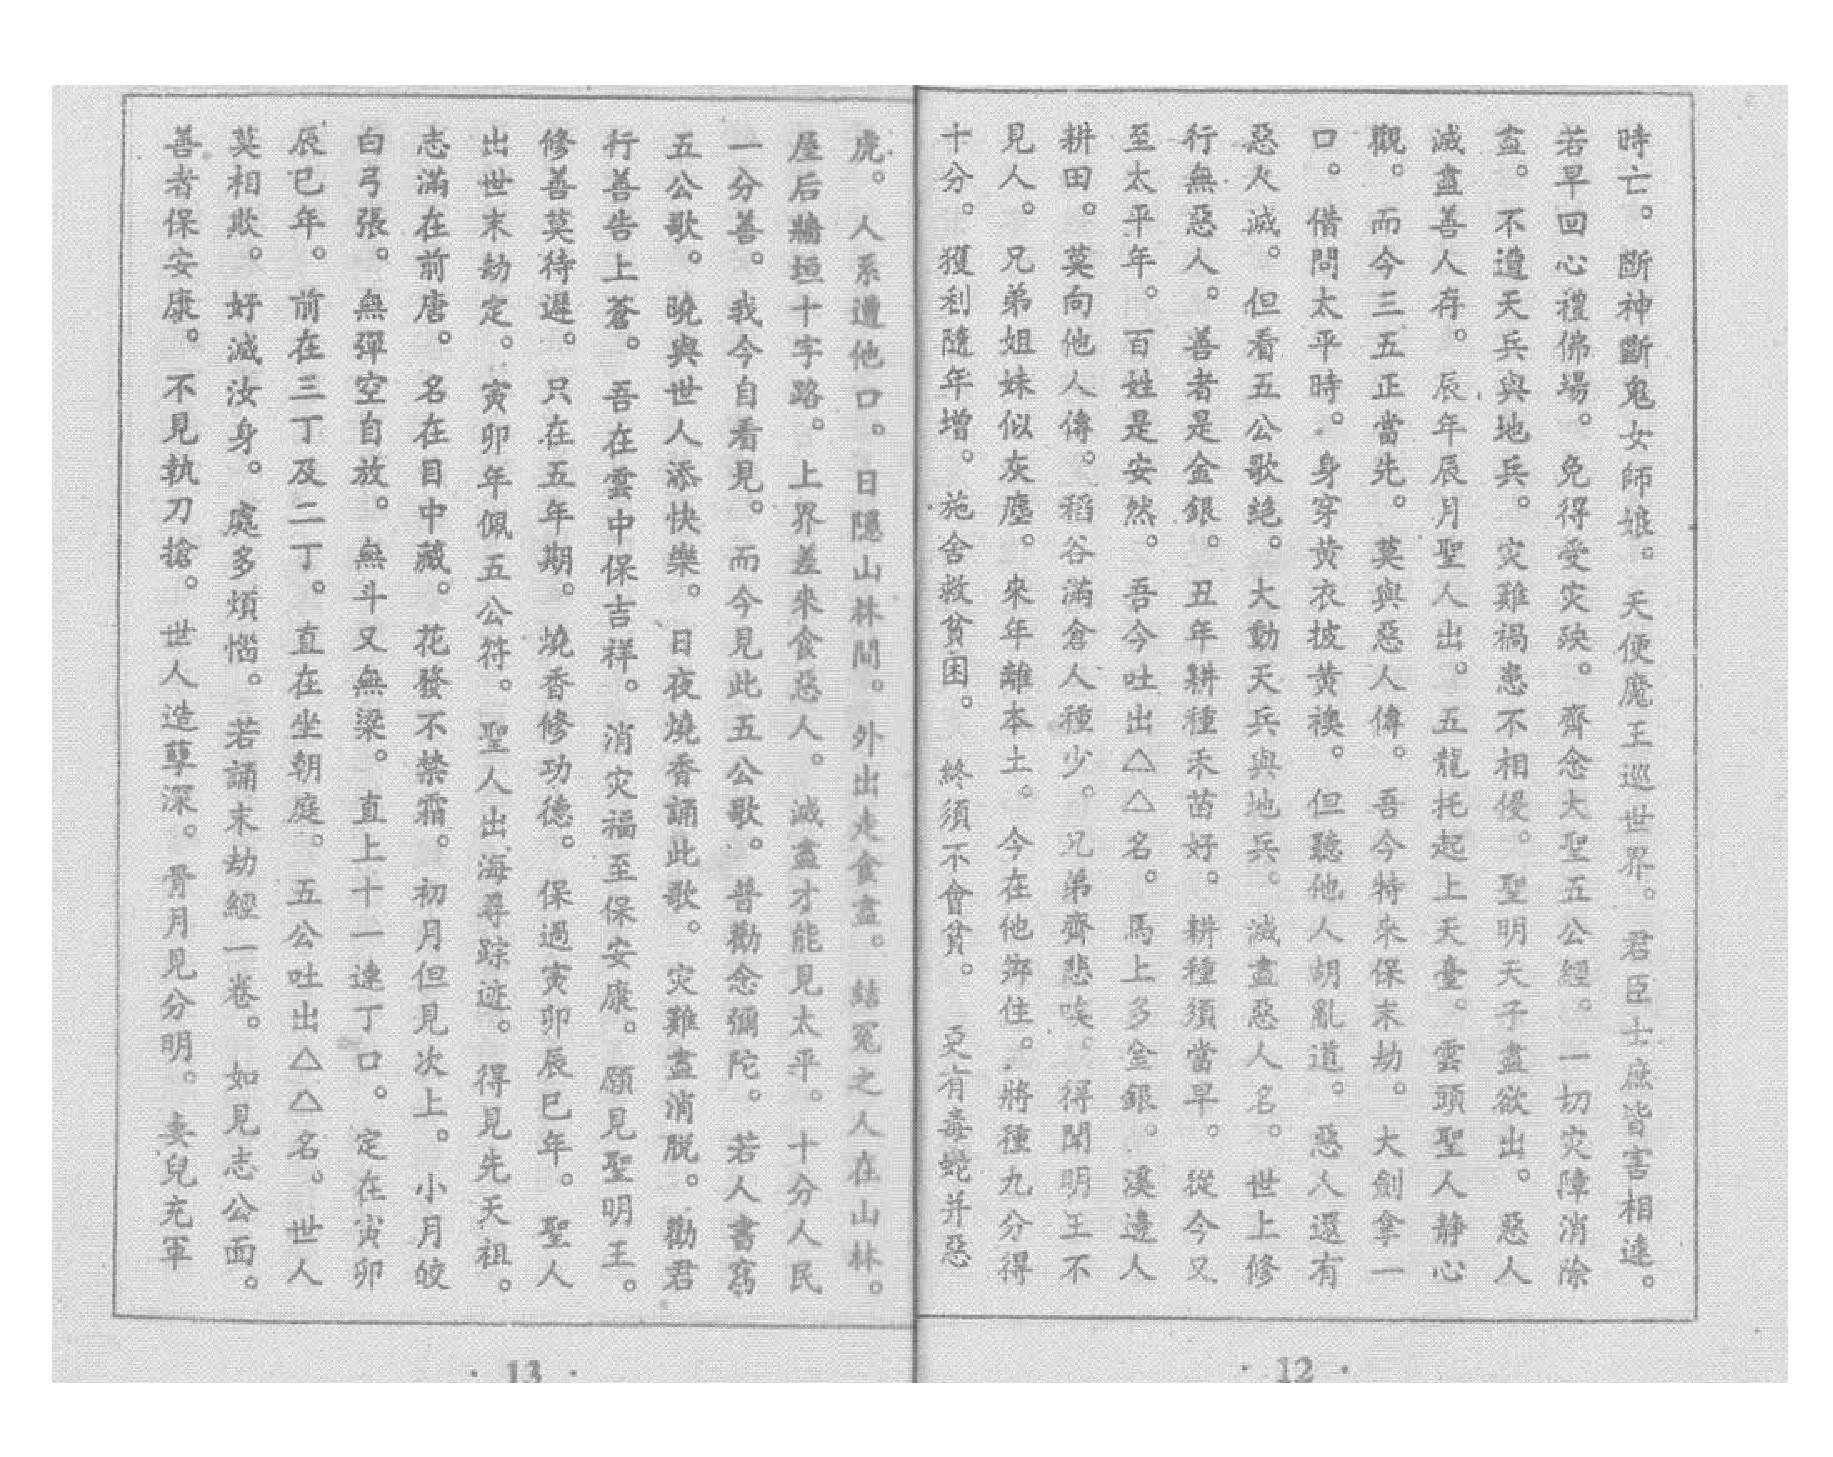 時亡。斷神斷鬼女師娘。天使魔王巡世界。君臣士庶皆害相連。
若早回心禮佛場。免得受灾殃。齊念大聖五公經。一切灾障消除
盡。不遭天兵與地兵。灾難禍患不相侵。聖明天子盡欲出。惡人
滅盡善人存。辰年辰月聖人出。五龍托起上天臺。雲頭聖人静心
觀。而今三五正當先。莫與惡人傳。吾今特來保末劫。大劍拿一
口。借問太平時。身穿黄衣披黄襖。但聽他人胡亂道。惡人還有
惡火滅。但看五公歌絶。大動天兵與地兵。滅盡惡人名。世上修
行無惡人。善者是金銀。丑年耕種禾苗好。耕種須當早。從今又
至太平年。百姓是安然。吾今吐出△△名。馬上多金銀。溪邊人
耕田。莫向他人傳。稻谷滿倉人種少。兄弟齊悲唉。得聞明王不
見人。兄弟姐妹似灰塵。來年離本土。今在他鄉住。將種九分得
十分。獲利隨年增。施舍救貧困。終須不會貧。更有毒蛇并惡
虎。人系遭他口。日隱山林間。外出走食盡。結冤之人在山林。
屋后牆垣十字路。上界差來食惡人。滅盡才能見太平。十分人民
一分善。我今自看見。而今見此五公歌。普勸念彌陀。若人書寫
五公歌。曉與世人添快樂。日夜燒香誦此歌。灾難盡消脱。勸君
行善告上蒼。吾在雲中保吉祥。消灾福至保安康。願見聖明王。
修善莫待遲。只在五年期。燒香修功德。保過寅卯辰巳年。聖人
出世末劫定。寅卯年佩五公符。聖人出海尋踪迹。得見先天祖。
志滿在前唐。名在目中藏。花發不禁霜。初月但見次上。小月皎
白弓張。無彈空自放。無斗又無梁。直上十一連丁口。定在寅卯
辰巳年。前在三丁及二丁。直在坐朝庭。五公吐出△△名。世人
莫相欺。好滅汝身。處多煩惱。若誦末劫經一卷。如見志公面。
善者保安康。不見執刀搶。世人造孽深。骨月見分明。妻兒充軍
·12·
·13·